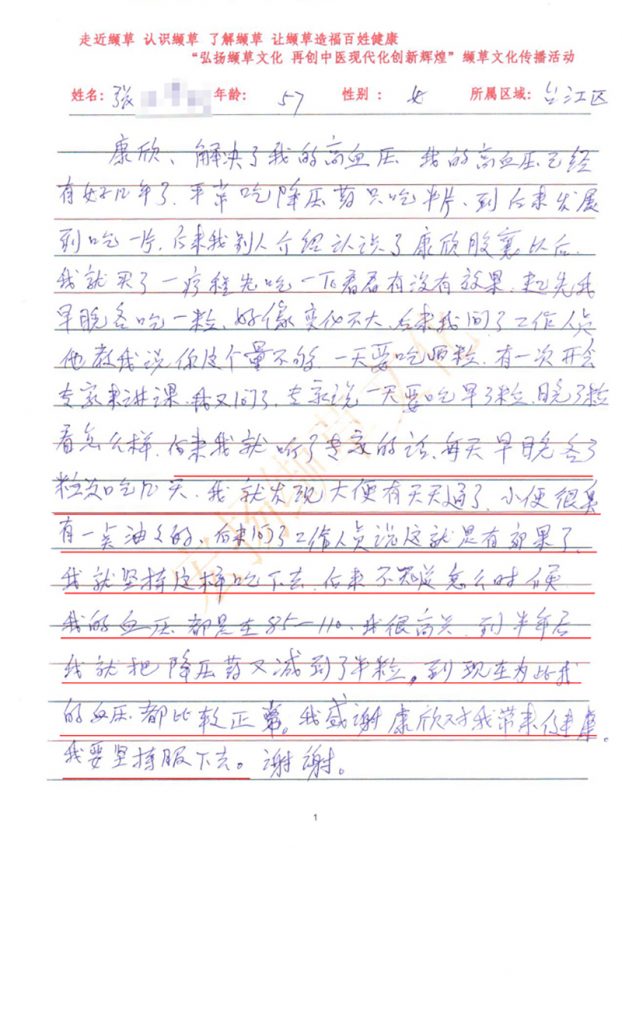 走近缬草 认识缬草 了解缬草 让缬草造福百姓健康
“弘扬缬草文化 再创中医现代化创新辉煌”缬草文化传播活动
姓名：张 年龄： 57 性别： 女 所属区域：台江区
康欣、解决了我的高血压 我的高血压已经
有好几年了．平常吃降压药只吃半片．到后来发展
到吃一片．后来我别人介绍认识了康欣胶囊以后．
我就买了一疗程先吃一下看看有没有效果．起先我
早晚各吃一粒．好像变化不大．后来我问了工作人员
他教我说．你这个量不够．一天要吃四粒．有一次开会
专家来讲课．我又问了．专家说一天要吃早3粒．晚3粒
看怎么样．后来我就听了专家的话．每天早晚各3
粒 吃几天．我就发现大便有天天通了．小便很臭
有一点油 的．后来问了工作人员说这就是有效果了．
我就坚持这样吃下去．后来不 怎么时候
我的血压都是在85—110．我很高兴．到半年后
我就把降压药又减到了半粒．到现在为止我
的血压都比较正常。我感谢康欣对我带来健康。
我要坚持服下去。谢谢。
1